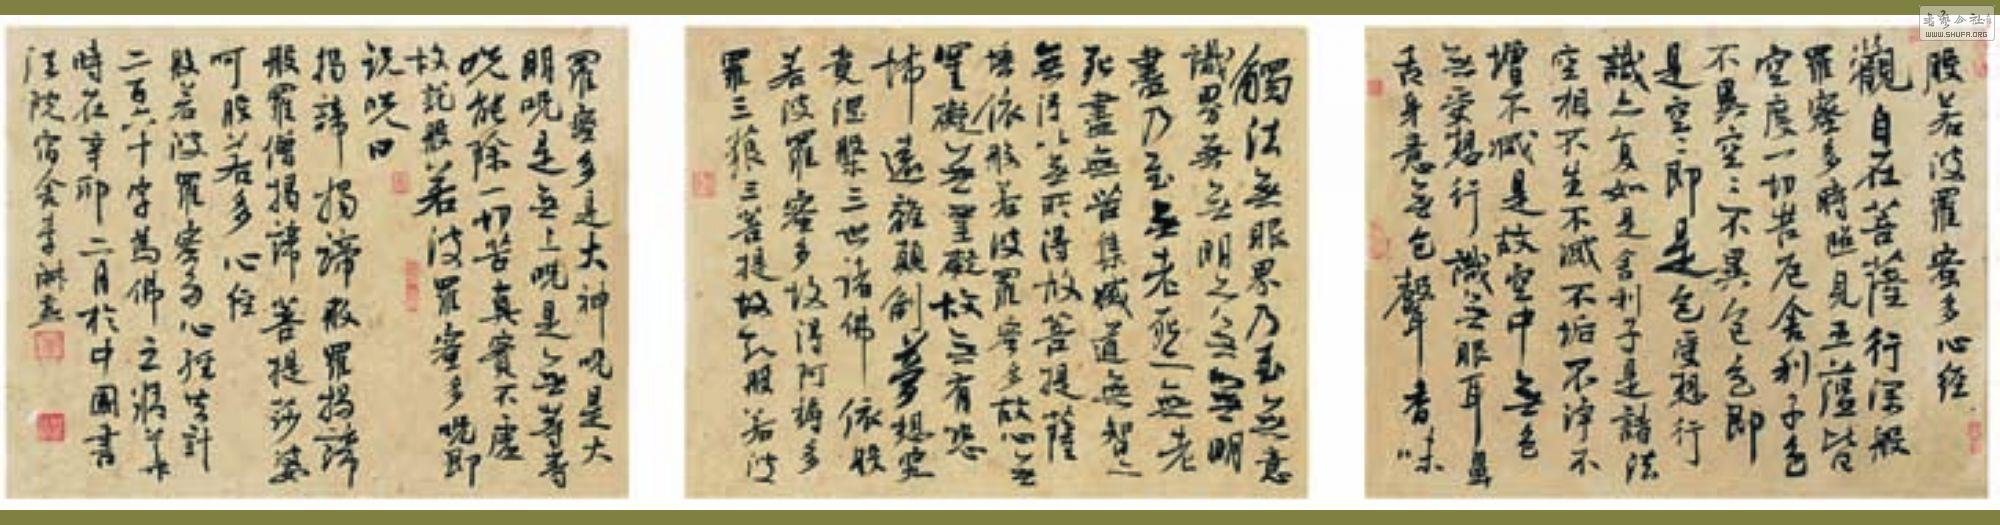 般若波羅蜜多心经
觀自在菩薩行深般
羅蜜多時照見五蘊皆
空度一切苦厄舍利子色
不異空〻不異色色即
是空〻即是色受想行
識亦复如是舍利子是諸法
空相不生不滅不垢不淨不
增不減是故空中無色
無受想行識無眼耳鼻
舌身意無色聲香味
觸法無眼界乃至無意
識界無無明亦無無明
盡乃至無老死亦無老
死盡無苦集滅道無智亦
無得以無所得故菩提薩
埵依般若波羅蜜多故心無
罣礙無罣礙故無有恐
怖遠離顛倒夢想究
竟涅槃三世諸佛依般
若波羅蜜多故得阿耨多
羅三藐三菩提故知般若波
羅蜜多是大神咒是大
明咒是無上咒是無等等
咒能除一切苦真實不虛
故説般若波羅蜜多咒即
説咒曰
揭諦揭諦般羅揭諦
般羅僧揭諦菩提莎婆
呵般若多心经
般若波羅蜜多心經共計
二百六十字為佛之精華
時在辛卯二月於中國書
法院宿舍李
WWW.SHUFA.ORG